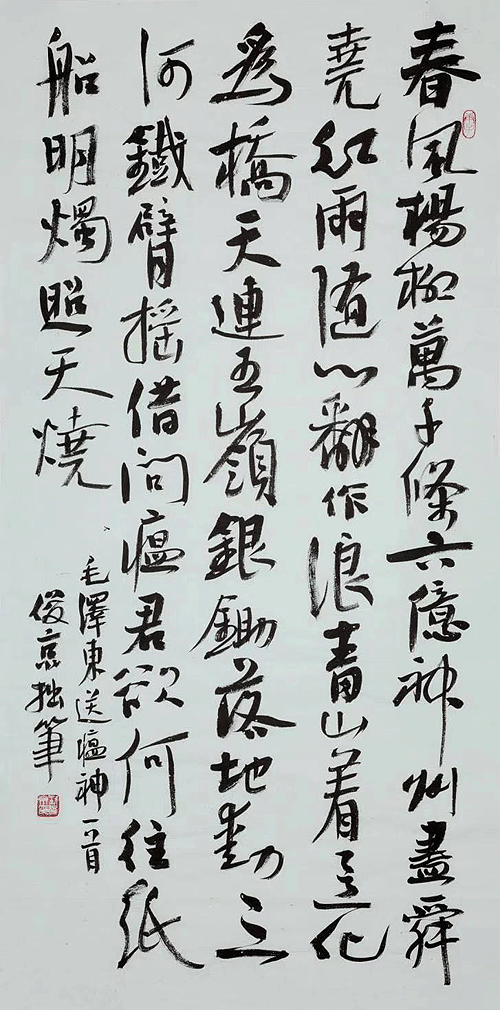 春風楊柳萬千條六億神州盡舜
堯紅雨隨心翻作浪青山着意化
爲橋天連五嶺銀鋤落地動三
河鐵臂搖借問瘟君欲何往紙
船明燭照天燒
毛澤東送瘟神一首
俊拙筆